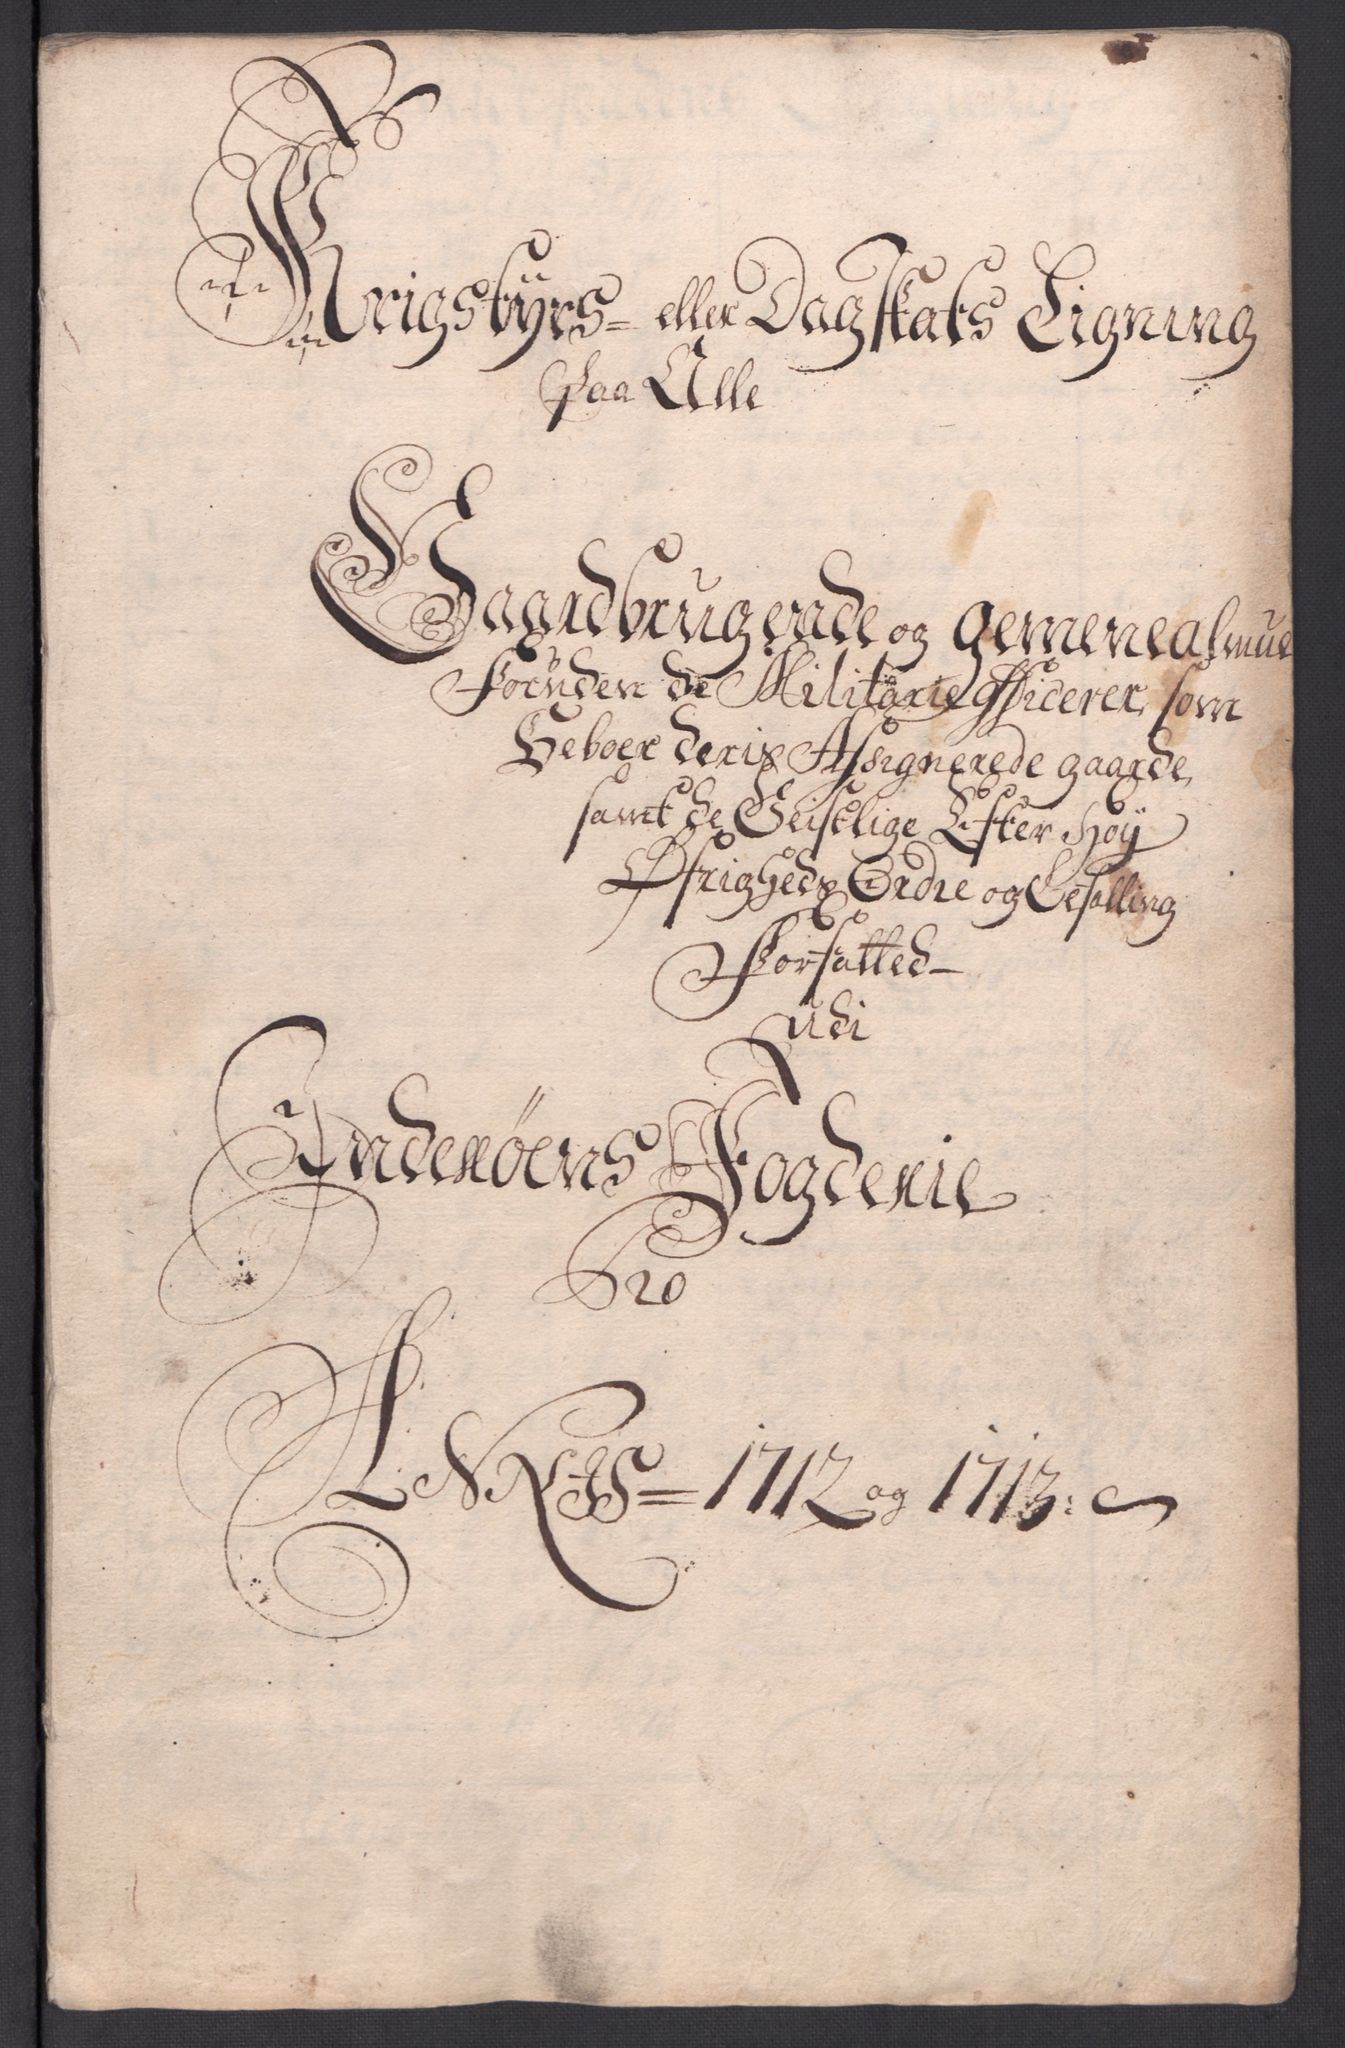 Krigstyrs= eller Dagskats Ligning
Paa Alle
Gaardbrugende og gemene almue
Foruden de Militarie officerer, som
Beboer deris Assignerede gaarde,
samt de Geistlige Efter Høy
Øfrigheds Ordre og Befalling
Forfatted
udi
Inderøens Fogderie
Pro
ANNis = 1712 og 1713: